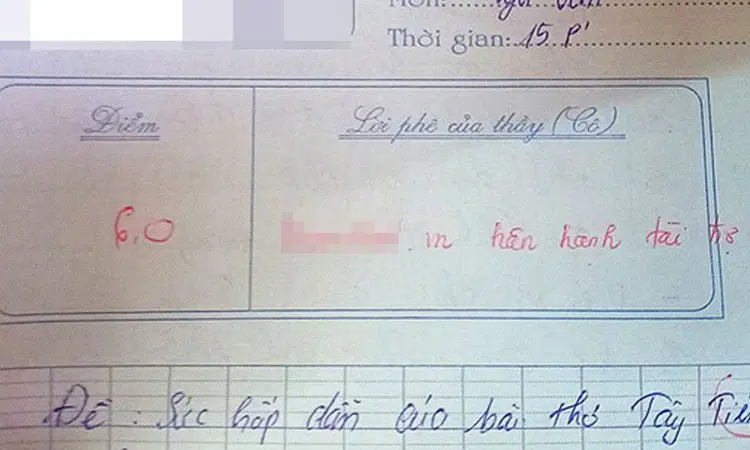 Môn: Ngữ Văn
Thời gian: 15 p'
Điểm
Lời phê của thầy (Cô)
6.0
.vn hân hạnh tài trợ
Đề : Sức hấp dẫn của bài thơ Tây Tiến